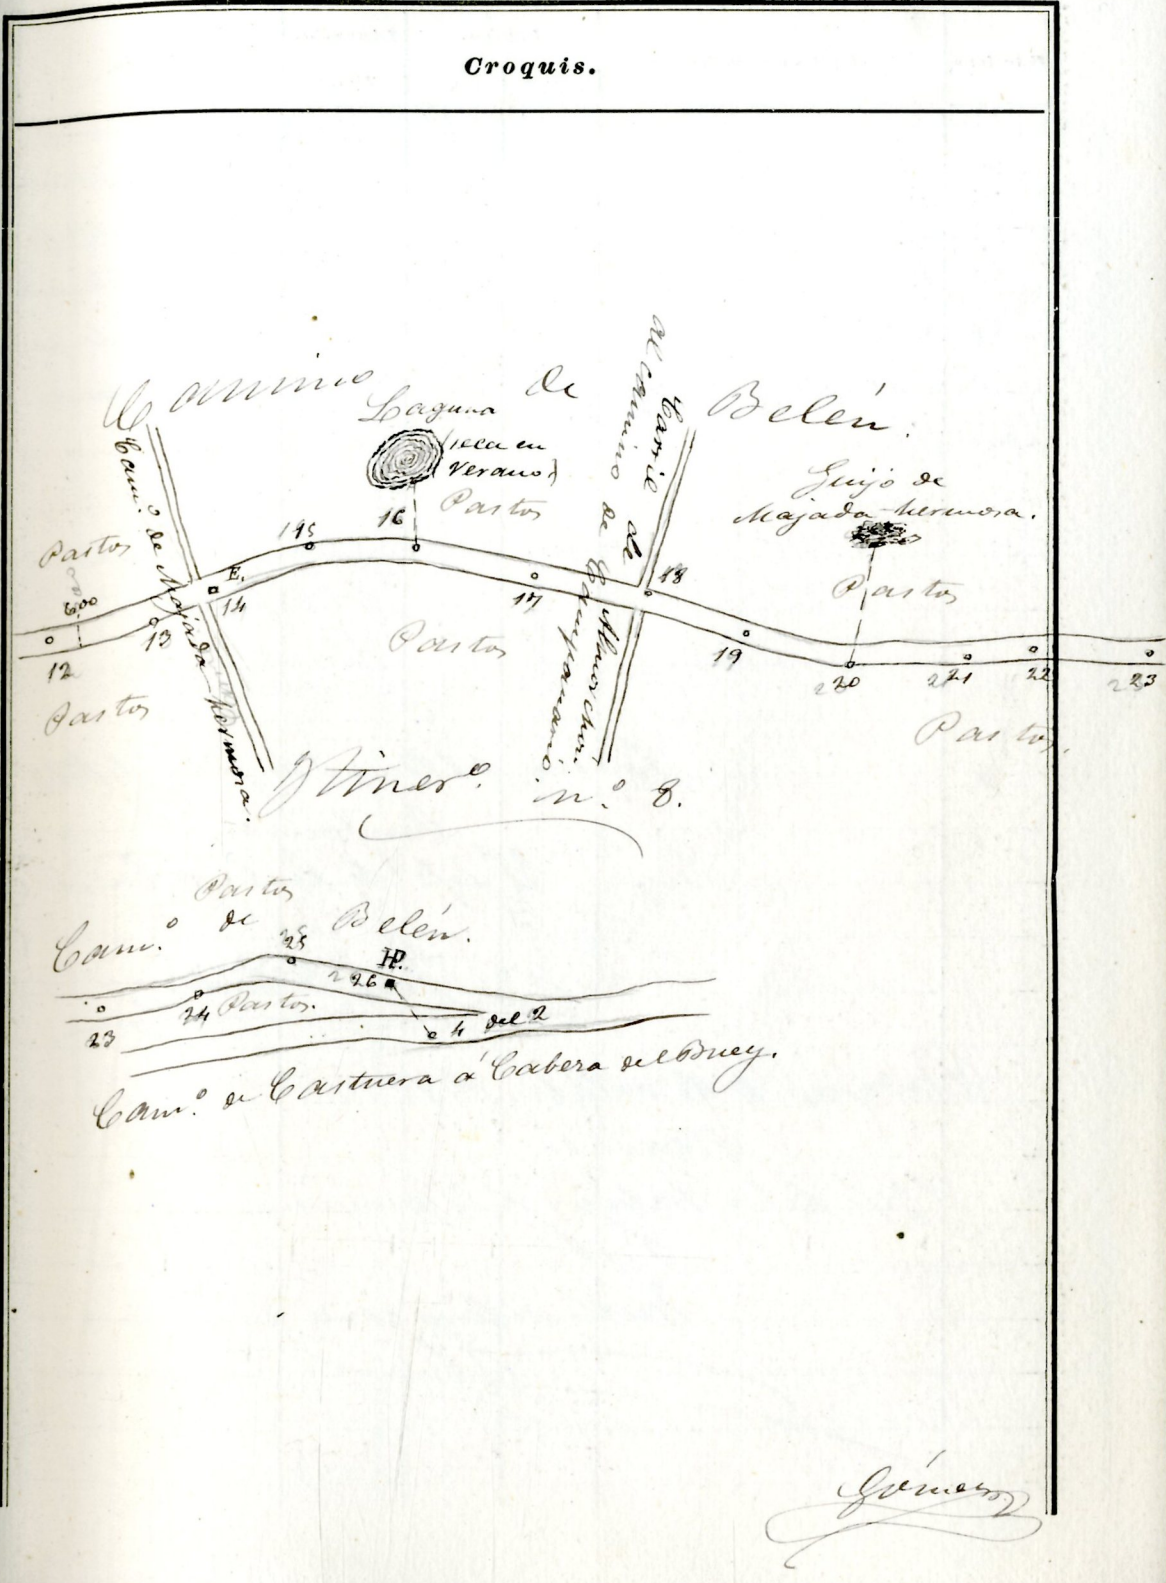 Croquis.
Camino de Belén.
Laguna
(seca en
Verano)
Pastos
Guijo de
Majada hermosa.
Cam.º de Majada hermosa.
Carril de
al camino de Campanario.
Pastos
Pastos
600
E.
12
13
14
15
16
17
18
19
20
21
22
23
Pastos
Pastos
Pastos
Itiner.º n.º 8.
Pastos
Cam.º de Belén.
25
HP.
26
24
Pastos.
23
4 del 2
Cam.º de Castuera á Cabeza del Buey.
Gómez